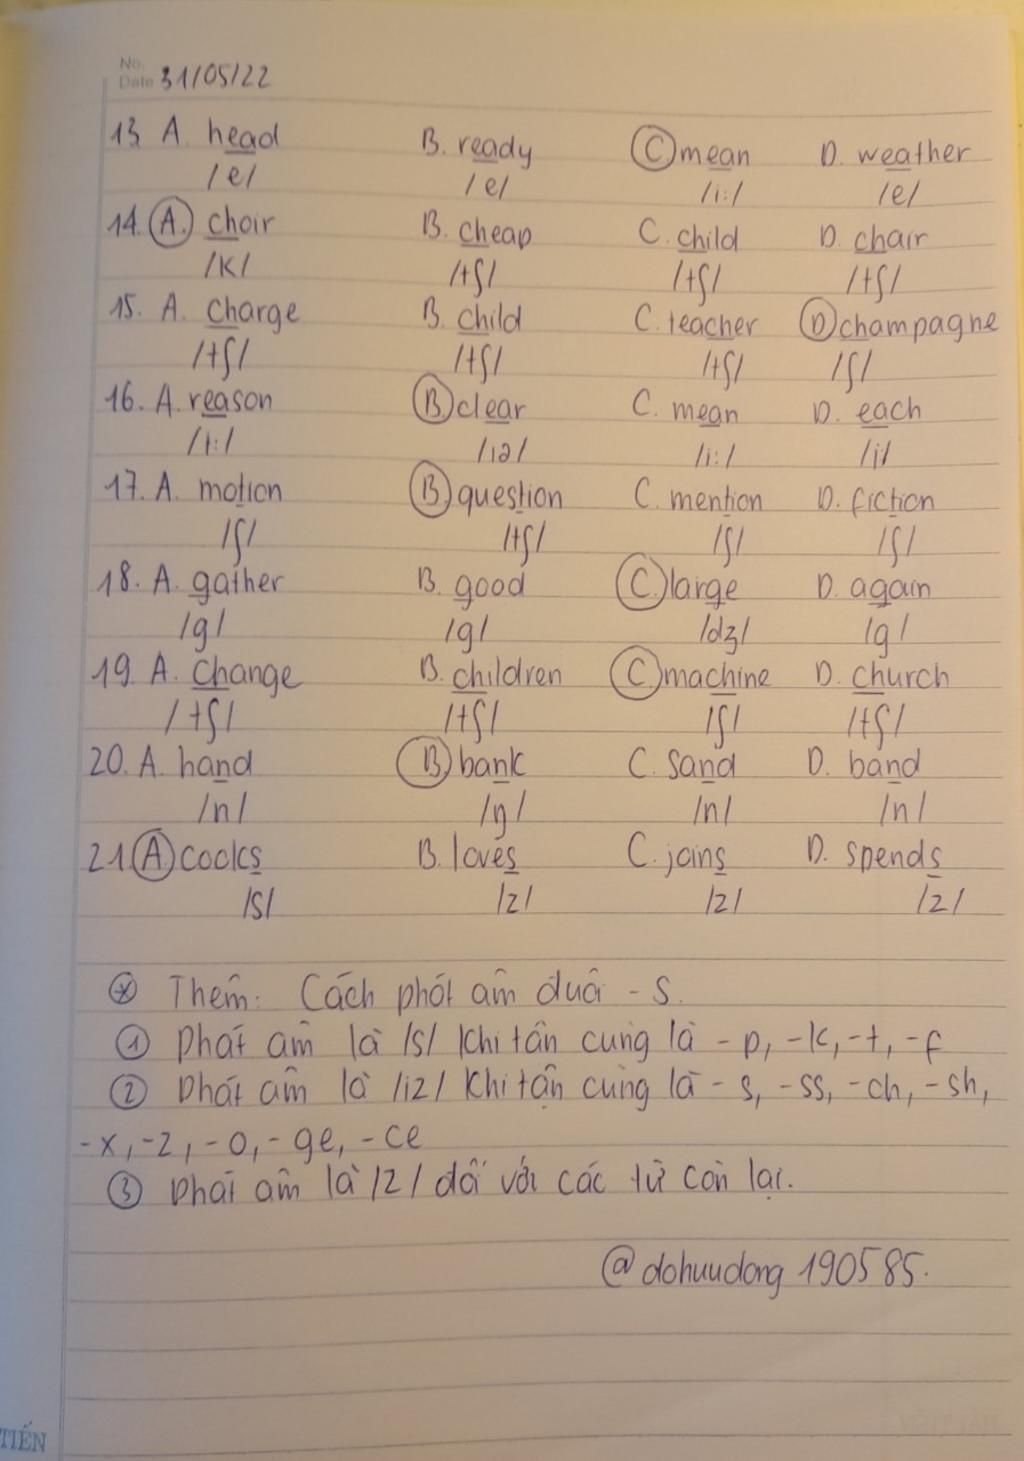 No.
Date 31/05/22
13 A. head B. ready C. mean D. weather
/e/ /e/ /i:/ /e/
14. A. choir B. cheap C. child D. chair
/k/ /tʃ/ /tʃ/ /tʃ/
15. A. charge B. child C. teacher D. champagne
/tʃ/ /tʃ/ /tʃ/ /ʃ/
16. A. reason B. clear C. mean D. each
/i:/ /iə/ /i:/ /i/
17. A. motion B. question C. mention D. fiction
/ʃ/ /tʃ/ /ʃ/ /ʃ/
18. A. gather B. good C. large D. again
/g/ /g/ /dʒ/ /g/
19 A. change B. children C. machine D. church
/tʃ/ /tʃ/ /ʃ/ /tʃ/
20. A. hand B. bank C. sand D. band
/n/ /ŋ/ /n/ /n/
21 A. cooks B. loves C. joins D. spends
/s/ /z/ /z/ /z/
* Thêm: Cách phát âm đuôi - s.
① phát âm là /s/ khi tận cùng là - p, - k, - t, - f
② phát âm là /iz/ khi tận cùng là - s, - ss, - ch, - sh,
- x, - z, - o, - ge, - ce
③ phát âm là /z/ đối với các từ còn lại.
@dohuudong190585.
TIẾN